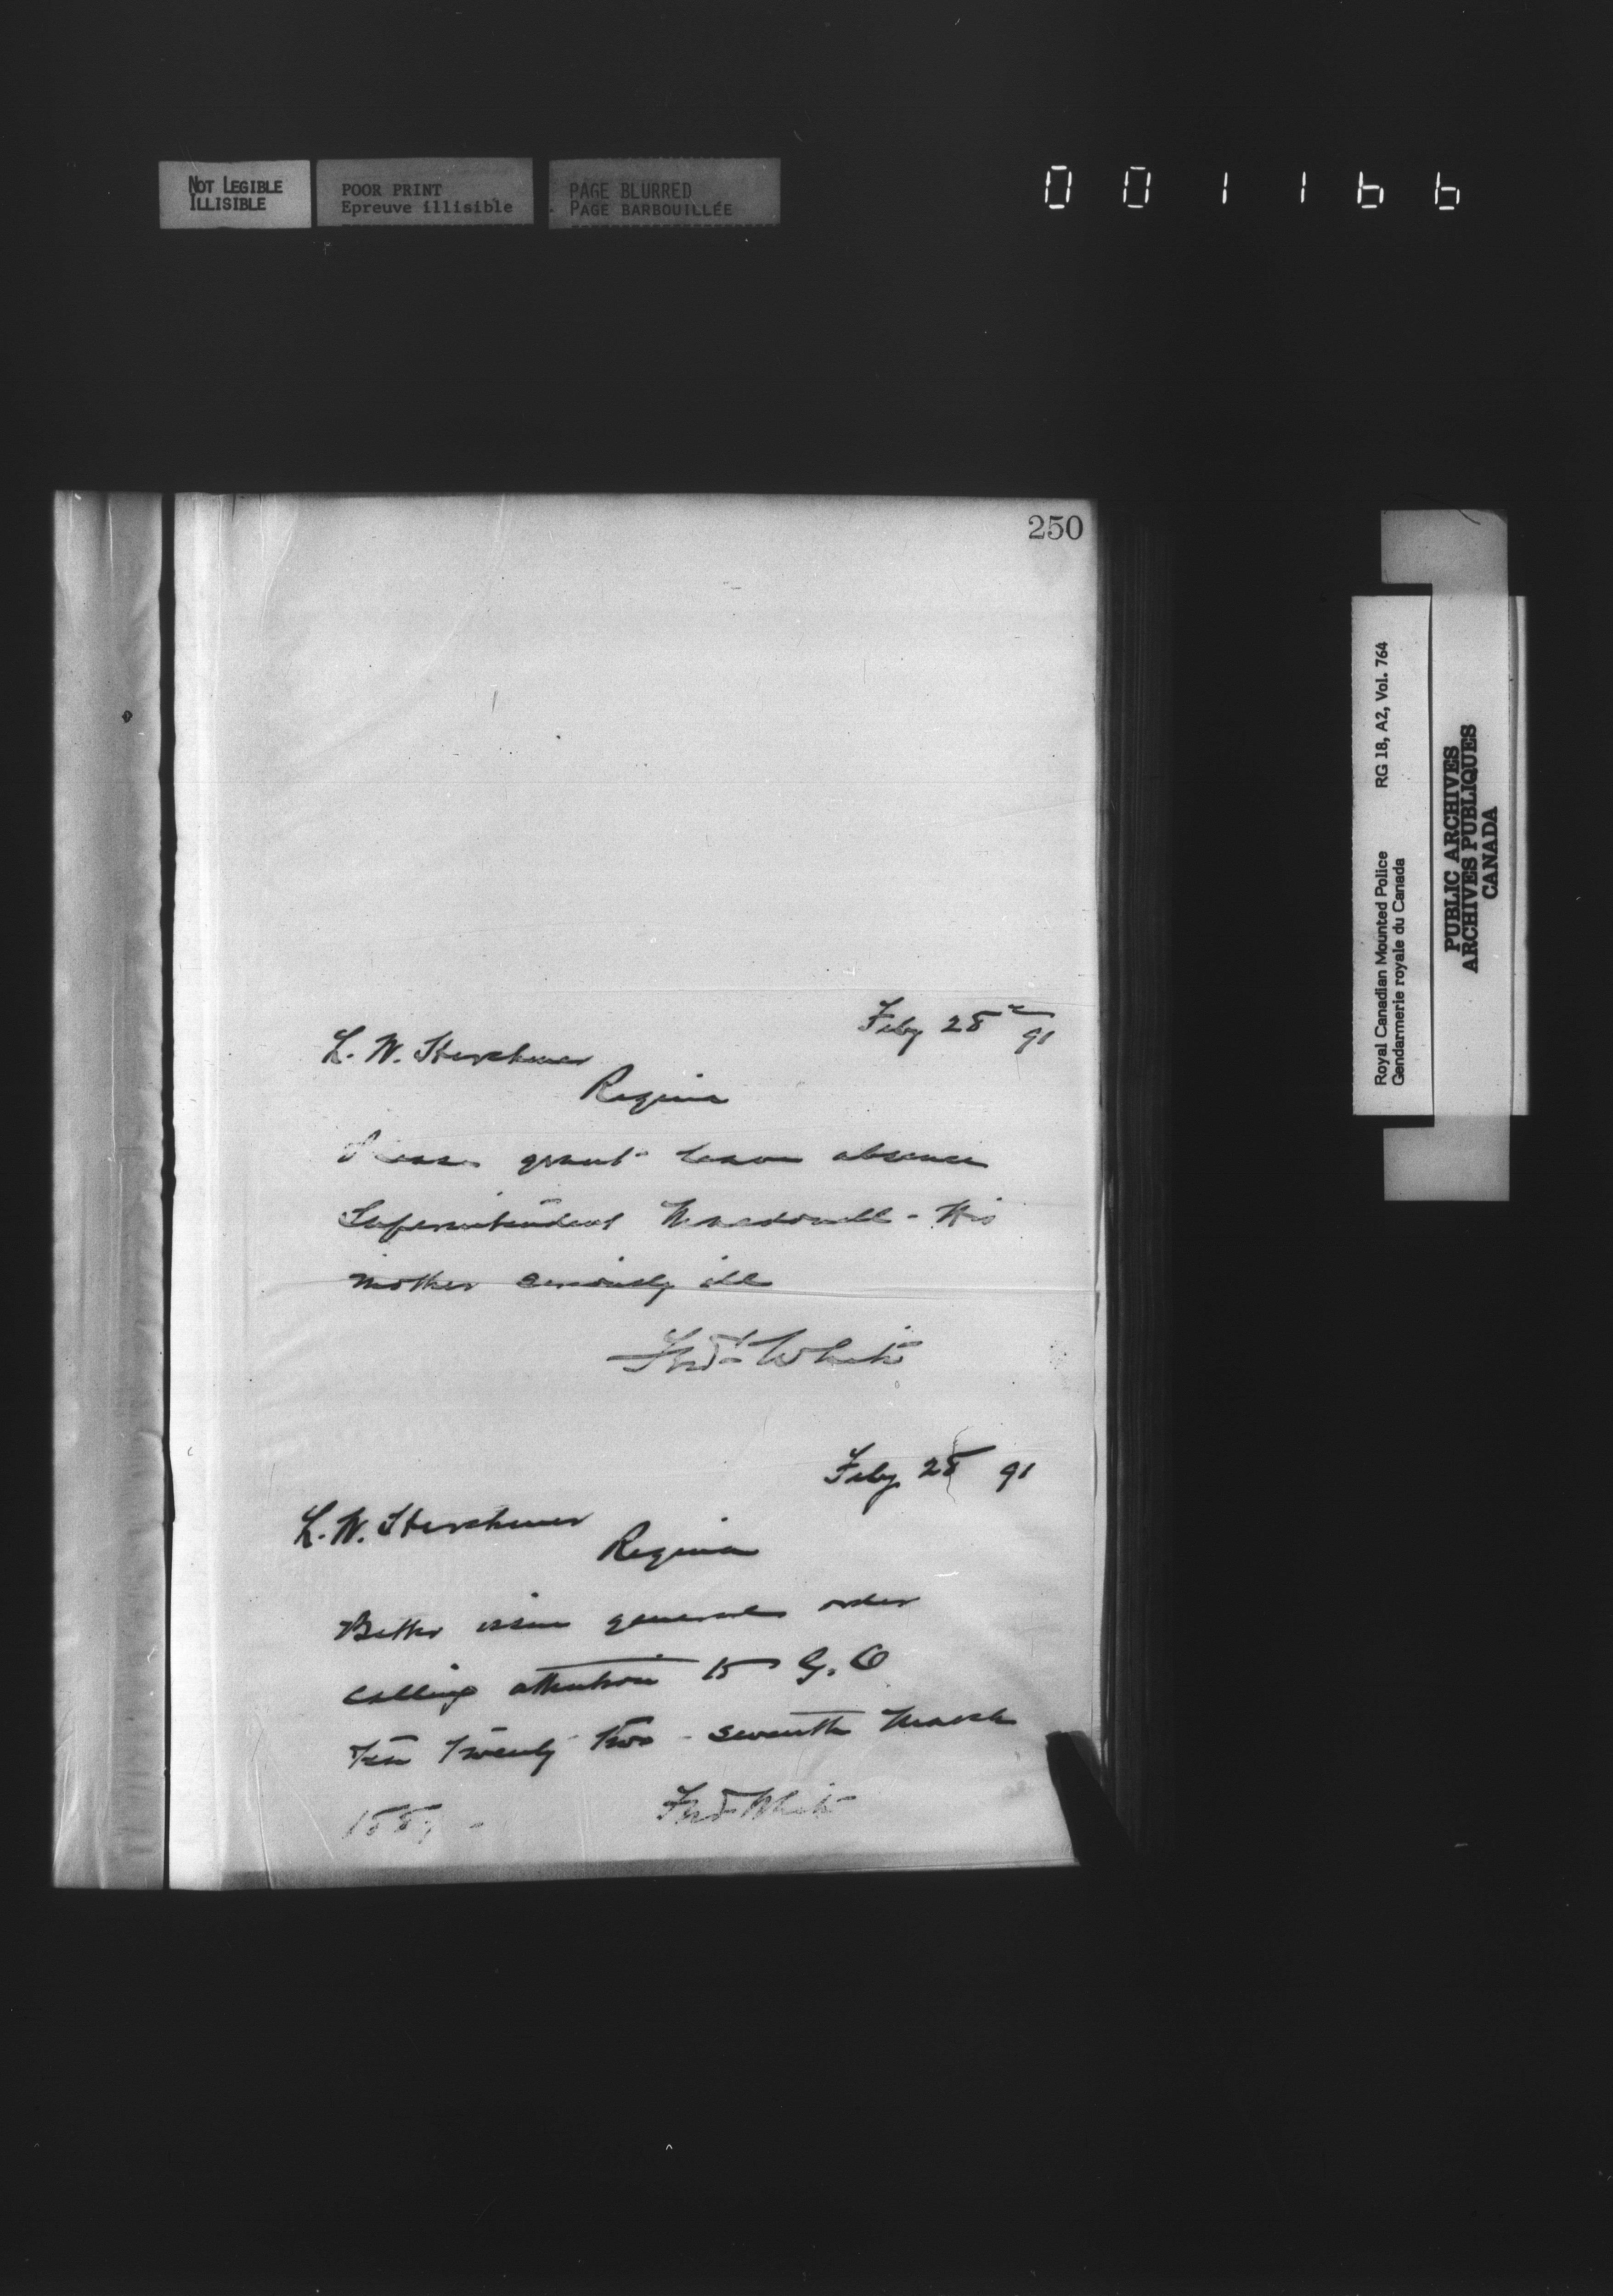 NOT LEGIBLE
ILLISIBLE
POOR PRINT
Epreuve illisible
PAGE BLURRED
PAGE BARBOUILLÉE
001166
250
Feby 28th 91
L. W. Herchmer
Regina
Please grant leave absence
Superintendent Macdonell - His
mother seriously ill
Fred White
Feby 28 91
L. W. Herchmer
Regina
Better issue general order
calling attention to G. O
Ten Twenty two - seventh March
Fred White
Royal Canadian Mounted Police RG 18, A2, Vol. 764
Gendarmerie royale du Canada
PUBLIC ARCHIVES
ARCHIVES PUBLIQUES
CANADA